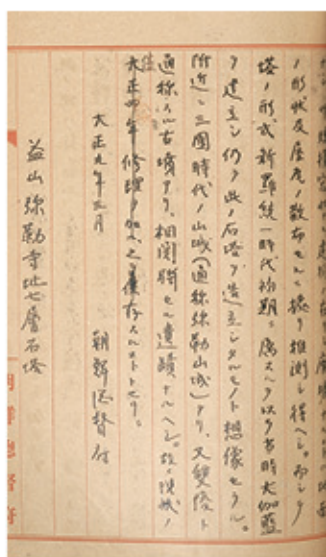 ノ形狀及礎石ノ散布セルニ據リ推測シ得ヘシ而シテ
塔ノ形式新羅統一時代初期ニ屬スルヲ以テ當時大伽藍
ヲ建立シ仍テ此ノ石塔ヲ造立シタルモノト想像セラル
附近ニ三國時代ノ山城(通稱彌勒山城)アリ又雙陵ト
通稱スル古墳アリ相關聯セル遺蹟ナルヘシ故ニ
大正四年修理ヲ加ヘ之ヲ保存スルコトトセリ。
大正九年三月
朝鮮總督府
益山彌勒寺址七層石塔
朝鮮總督府